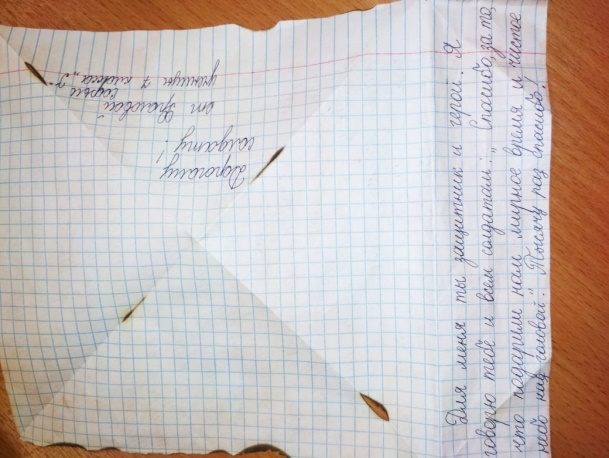 Дорогому
солдату!
от Фраловой
Софьи
ученицы 7 класса „Г"
Для меня ты защитник и герой. Я
говорю тебе и всем солдатам: „Спасибо, за то,
что подарили нам мирное время и чистое
небо над головой." Тысячу раз спасибо!